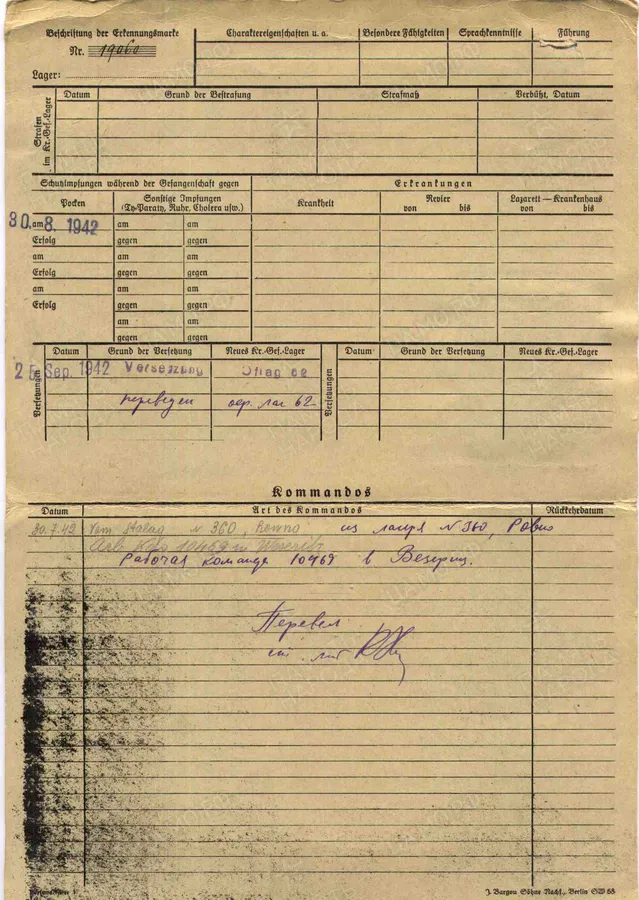 Beschriftung der Erkennungsmarke
Nr. 19060
Lager:
Charaktereigenschaften u. a.
Besondere Fähigkeiten
Sprachkenntnisse
Führung
Strafen im Kr.-Gef.-Lager
Datum
Grund der Bestrafung
Strafmaß
Verbüßt, Datum
Schutzimpfungen während der Gefangenschaft gegen
Erkrankungen
Pocken
Sonstige Impfungen
(Ty-Paraty, Ruhr, Cholera usw.)
Krankheit
Revier
von bis
Lazarett — Krankenhaus
von bis
30. am 8. 1942 am am
Erfolg gegen gegen
am am am
Erfolg gegen gegen
am am am
Erfolg gegen gegen
am am
gegen gegen
Versetzungen
Datum Grund der Versetzung Neues Kr.-Gef.-Lager
25 Sep. 1942 Versetzung Oflag 62
переведен оф. лаг 62
Versetzungen
Datum Grund der Versetzung Neues Kr.-Gef.-Lager
Kommandos
Datum Art des Kommandos Rückkehrdatum
30.7.42 Vom Stalag № 360, Rowno из лагря № 360, Ровно
Arb. Kdo 10469
Рабочая команда 10469 в Везериц.
Перевел
J. Bargou Söhne Nachf., Berlin SW 68